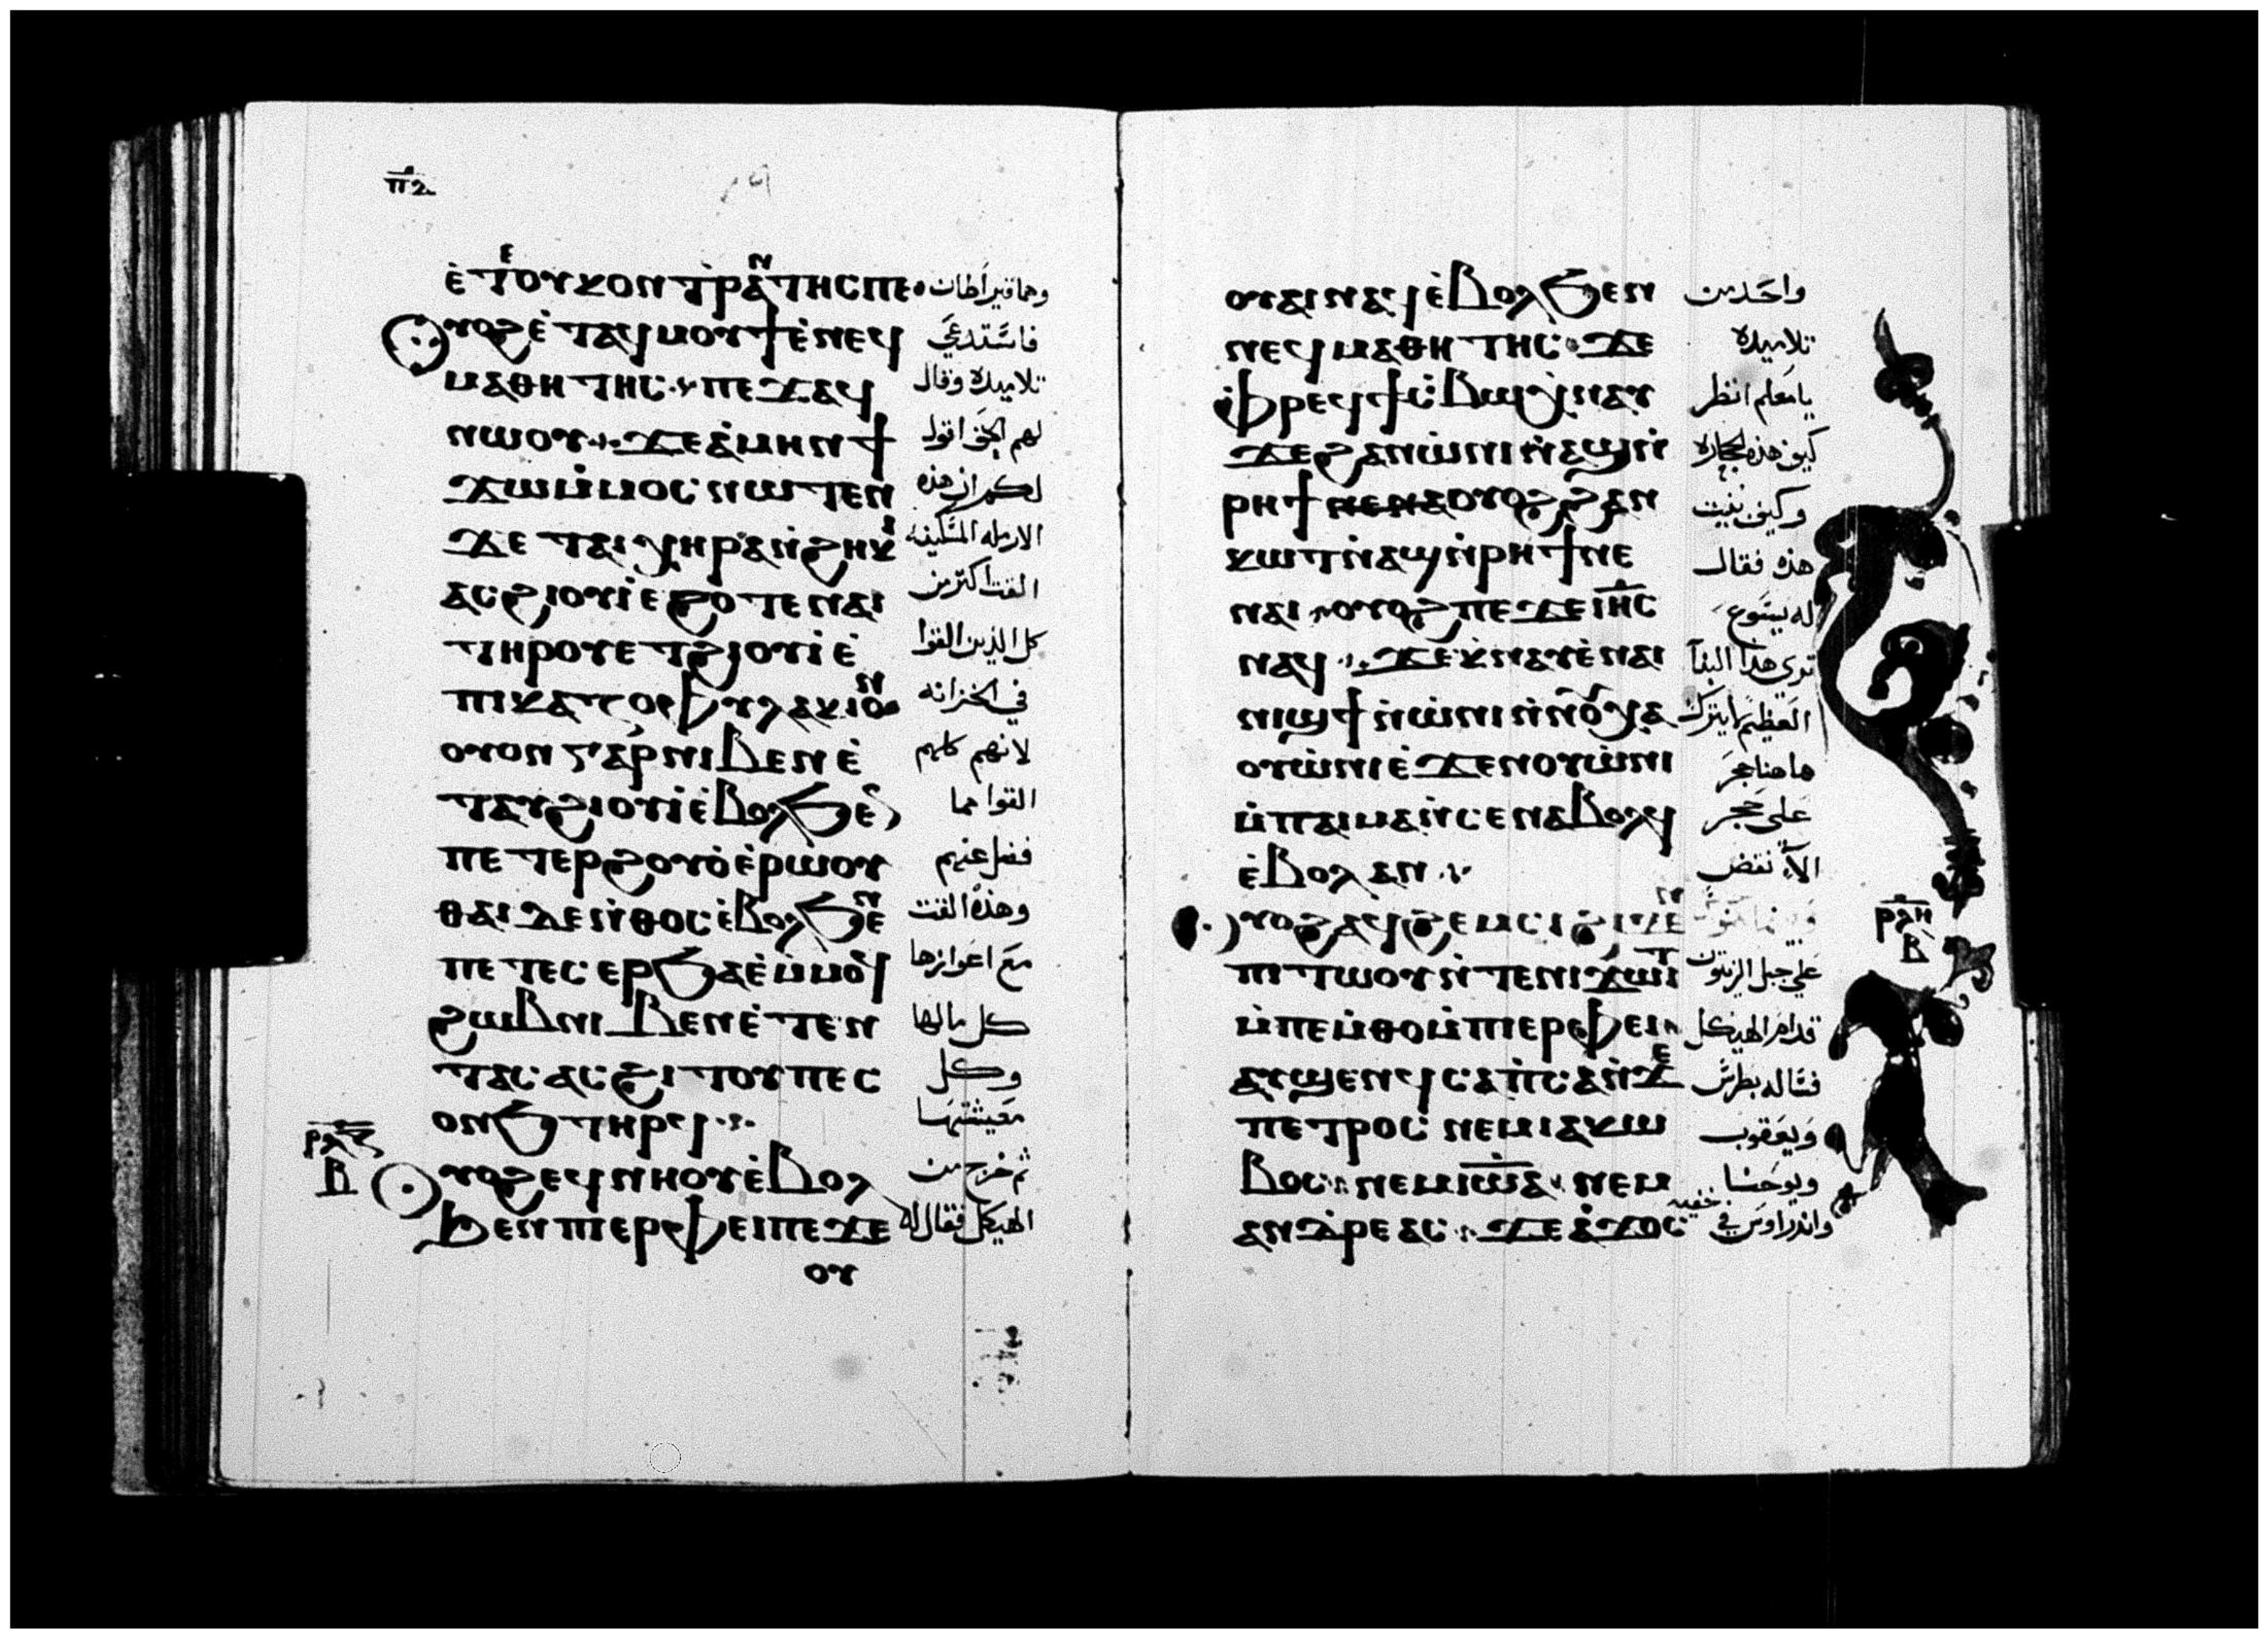 ⲡ︤ⲍ︥
ⲉ̀ⲧⲉ ⲟⲩⲕⲟⲛⲧⲣⲁⲛⲧⲏⲥ ⲡⲉ· وهما قيراطان
ⲟⲩⲟϩ ⲉ̀ⲧⲁϥⲙⲟⲩϯ ⲉ̀ⲛⲉϥ فاستدعي
ⲙⲁⲑⲏⲧⲏⲥ ⲡⲉϫⲁϥ تلاميذه وقال
ⲛⲱⲟⲩ ϫⲉ ⲁ̀ⲙⲏⲛ ϯ لهم الحق اقول
ϫⲱ ⲙ̀ⲙⲟⲥ ⲛⲱⲧⲉⲛ لكم ان هذه
ϫⲉ ⲧⲁⲓⲭⲏⲣⲁ ⲛ̀ϩⲏⲕⲓ الارمله المسكينه
ⲁⲥϩⲓⲟⲩⲓ̀ ⲉϩⲟⲧⲉ ⲛⲁⲓ القت اكثر من
ⲧⲏⲣⲟⲩ ⲉⲧϩⲓⲟⲩⲓ̀ ⲉ̀ كل الذين القوا
ⲡⲓⲕⲁⲍⲟⲫⲩⲗⲁⲕⲓⲟⲛ في الخزانه
ⲟⲩⲟⲛ ⲅⲁⲣ ⲛⲓⲃⲉⲛ ⲉ̀ لانهم كلهم
ⲧⲁⲩϩⲓⲟⲩⲓ̀ ⲉ̀ⲃⲟⲗ ϧⲉⲛ القوا مما
ⲡⲉⲧⲉⲣϩⲟⲩⲟ̀ ⲉ̀ⲣⲱⲟⲩ فضل عنهم
ⲑⲁⲓ ⲇⲉ ⲛ̀ⲑⲟⲥ ⲉ̀ⲃⲟⲗ ϧⲉⲛ وهذه القت
ⲡⲉⲧⲉⲥⲉⲣϧⲁⲉ̀ ⲙ̀ⲙⲟϥ مع اعوازها
ϩⲱⲃ ⲛⲓⲃⲉⲛ ⲉ̀ⲧⲉⲛ كل ما لها
ⲧⲁⲥ ⲁⲥϩⲓⲧⲟⲩ ⲡⲉⲥ وكل
ⲱⲛϧ ⲧⲏⲣϥ معيشتها
ⲣ︤ⲗⲍ︥
ⲃ
ⲟⲩⲟϩ ⲉϥⲛⲏⲟⲩ ⲉ̀ⲃⲟⲗ ثم خرج من
ϧⲉⲛ ⲡⲓⲉⲣⲫⲉⲓ ⲡⲉϫⲉ الهيكل فقال له
ⲟⲩ
ⲟⲩⲁⲓ ⲛⲁϥ ⲉ̀ⲃⲟⲗ ϧⲉⲛ واحد من
ⲛⲉϥⲙⲁⲑⲏⲧⲏⲥ ϫⲉ تلاميذه
ⲫⲣⲉϥϯⲥ̀ⲃⲱ ⲭ̀ⲛⲁⲩ يا معلم انظر
ϫⲉ ϩⲁⲛⲱ̀ⲛⲓ ⲛ̀ⲁϣ ⲛ̀ كيف هذه الحجاره
ⲣⲏϯ ⲛⲉ ⲛⲁ ⲟⲩⲟϩ ϩⲁⲛ وكيف بنيت
ⲕⲱⲧ ⲛ̀ⲁϣ ⲛ̀ⲣⲏϯ ⲛⲉ هذه فقال
ⲛⲁⲓ ⲟⲩⲟϩ ⲡⲉϫⲉ ⲓ︤ⲏⲥ︥ له يسوع
ⲛⲁϥ ϫⲉ ⲭ̀ⲛⲁⲩ ⲉ̀ⲛⲁⲓ تري هذا البنآ
ⲛⲓϣϯ ⲛ̀ⲱ̀ⲛⲓ ⲛ̀ⲛⲟⲩⲭⲁ العظيم ما يترك
ⲟⲩⲱ̀ⲛⲓ ⲉ̀ϫⲉⲛ ⲟⲩⲱ̀ⲛⲓ هاهنا حجر
ⲙ̀ⲡⲁⲓⲙⲁ ⲛ̀ⲥⲉⲛⲁⲃⲟⲗϥ علي حجر
ⲉ̀ⲃⲟⲗ ⲁⲛ الا نقض
ⲣ︤ⲗⲏ︥
ⲃ
ⲟⲩⲟϩ ⲁϥϩⲉⲙⲥⲓ ϩⲓϫⲉⲛ
ⲡⲓⲧⲱⲟⲩ ⲛ̀ⲧⲉ ⲛⲓϫⲱⲓⲧ علي جبل الزيتون
ⲙ̀ⲡⲉⲙ̀ⲑⲟ ⲙ̀ⲡⲓⲉⲣⲫⲉⲓ قدام الهيكل
ⲁⲩϣⲉⲛϥ ⲥⲁⲡ̀ⲥⲁ ⲛ̀ϫⲉ فساله بطرس
ⲡⲉⲧⲣⲟⲥ ⲛⲉⲙ ⲓⲁⲕⲱ ويعقوب
ⲃⲟⲥ ⲛⲉⲙ ⲓ︤ⲱⲁ︥ ⲛⲉⲙ ويوحنا
ⲁⲛⲇⲣⲉⲁⲥ ϫⲉ ⲁ̀ϫⲟⲥ واندراوس في خفيه